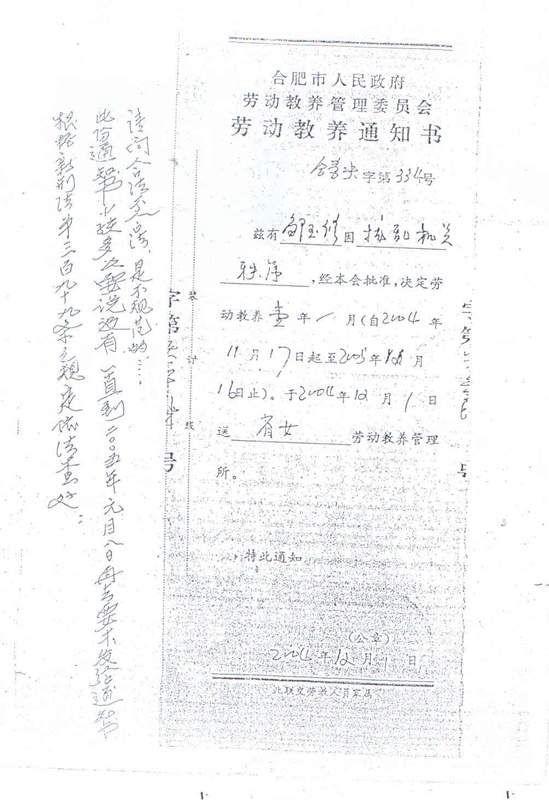 合肥市人民政府
劳动教养管理委员会
劳动教养通知书
字第334号
兹有 因 扰乱机关
秩序,经本会批准,决定劳
动教养壹年/月(自2004年
11月17日起至2005年 月
16日止)。于2004年12月1日
送 省女 劳动教养管理
所。
特此通知
(公章)
2004年12月1日
此联交劳教人员家属
装
订
线
字第
号
请问合法不 是不规范的……
此份通知书 多次要说没有 一直到二00五年元月八日再去要才发给通知书
根据新刑法第三百九十九条之规定依法查处: